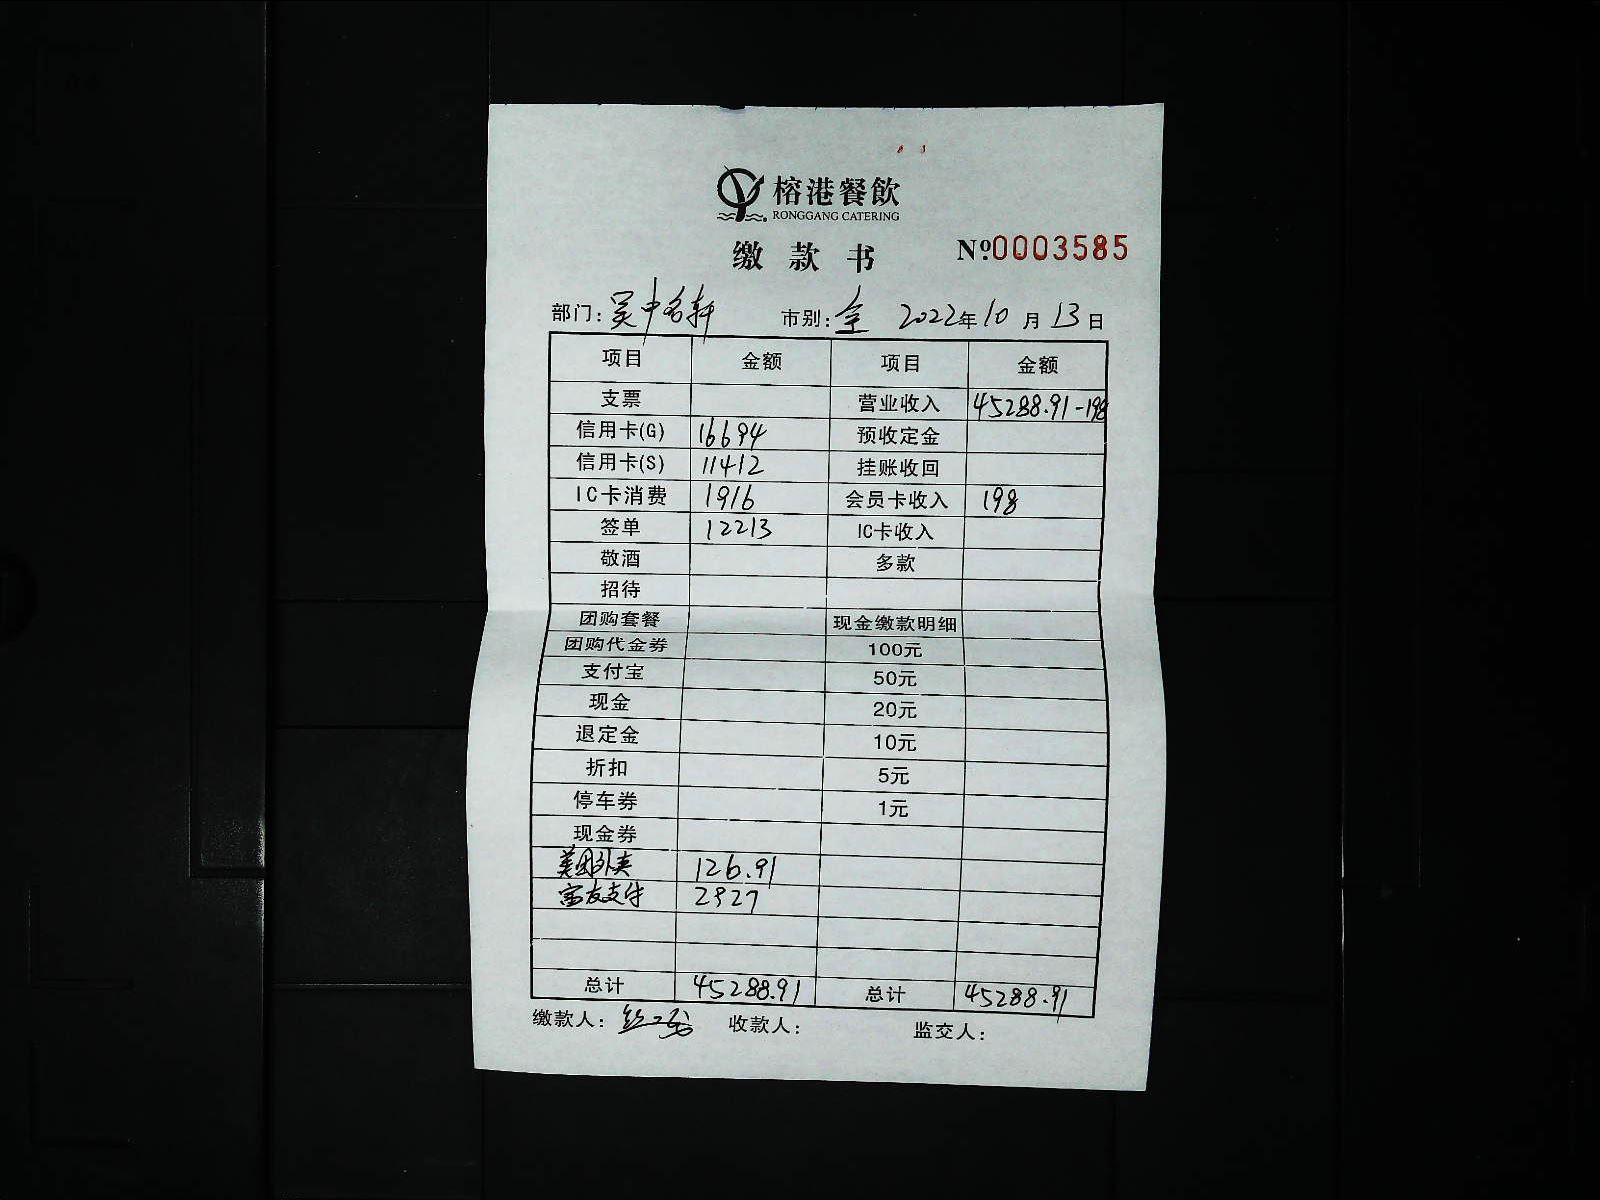 榕港餐飲
RONGGANG CATERING
缴款书 №0003585
部门: 吴中名轩 市别: 全 2022年10月13日
项目 金额 项目 金额
支票 营业收入 45288.91-198
信用卡(G) 16694 预收定金
信用卡(S) 11412 挂账收回
IC卡消费 1916 会员卡收入 198
签单 12213 IC卡收入
敬酒 多款
招待
团购套餐 现金缴款明细
团购代金券 100元
支付宝 50元
现金 20元
退定金 10元
折扣 5元
停车券 1元
现金券
美团外卖 126.91
富友支付 2927
总计 45288.91 总计 45288.91
缴款人: 收款人: 监交人: